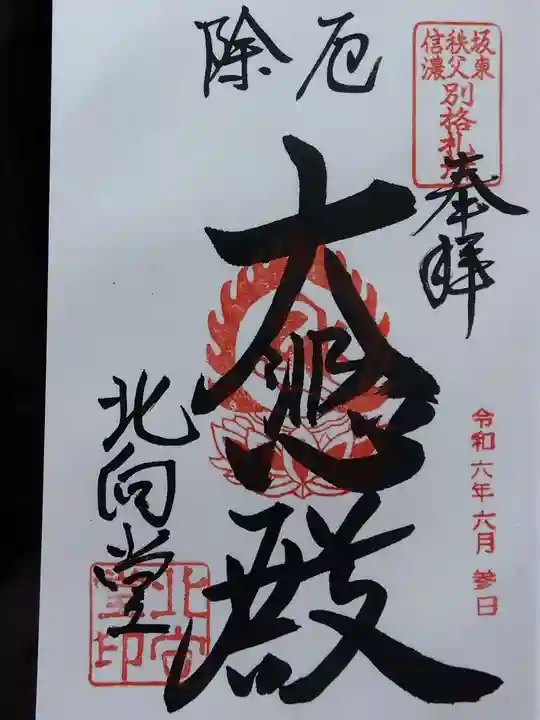 坂東
秩父
信濃
別格札所
奉拝
厄除
大悲殿
北向堂
令和六年六月 参日